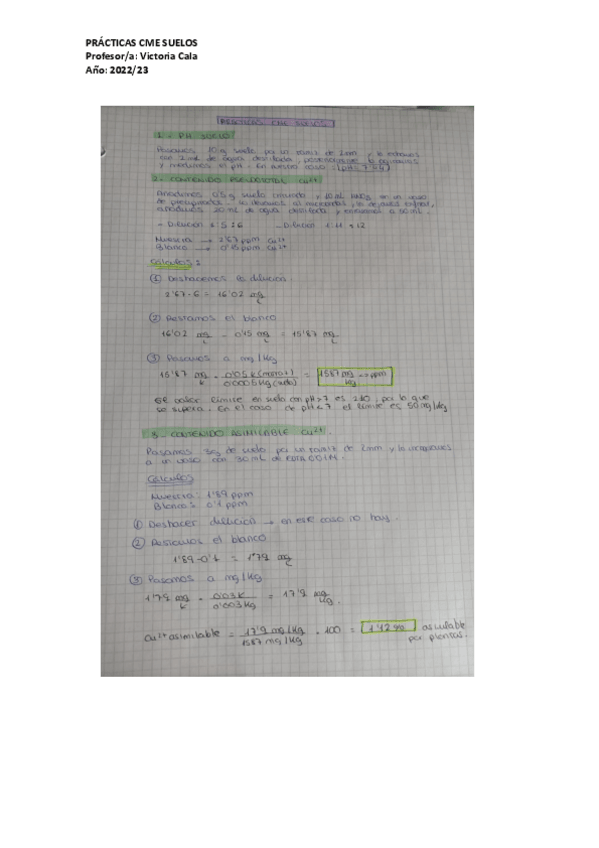 PRÁCTICAS CME SUELOS
Profesor/a: Victoria Cala
Año: 2022/23
PRÁCTICAS CME SUELOS
1.- PH SUELO
Pesamos 10 g suelo por un tamiz de 2mm y lo echamos
con 2 mL de agua destilada, posteriormente lo agitamos
y medimos el pH. En nuestro caso (pH=7'
2.- CONTENIDO PSEUDOTOTAL Cu2+
Añadimos 0'5 g suelo y 10 mL HNO3 en un vaso
de precipitados. Lo llevamos al microondas, lo dejamos enfriar,
añadimos 20 mL de agua destilada y a 50 mL.
- Dilución 1:5 : 6 - Dilución 1:11 : 12
Muestra → 2'67 ppm Cu2+
Blanco → 0'15 ppm Cu2+
Cálculos:
① Deshacemos la dilución.
2'67 · 6 = 16'02 mg/L
② Restamos el blanco
16'02 mg/L - 0'15 mg/L = 15'87 mg/L
③ Pasamos a mg/kg
15'87 mg/L · 0'05 L (matraz) / 0'0005 kg (suelo) = 1587 mg/kg → ppm
El valor límite en suelo con pH>7 es 210, por lo que
lo supera. En el caso de pH<7 el límite es 50 mg/kg
3.- CONTENIDO ASIMILABLE Cu2+.
Pasamos 3g de suelo por un tamiz de 2mm y lo
a un vaso con 30 mL de EDTA 0'01M.
Cálculos
Muestra: 1'89 ppm
Blanco: 0'1 ppm
① Deshacer dilución → en este caso no hay.
② Restamos el blanco
1'89 - 0'1 = 1'79 mg/L
③ Pasamos a mg/kg
1'79 mg/L · 0'03 L / 0'003 kg = 17'9 mg/kg.
Cu2+ asimilable = 17'9 mg/kg / 1587 mg/kg · 100 = 1'12% asimilable
por plantas.